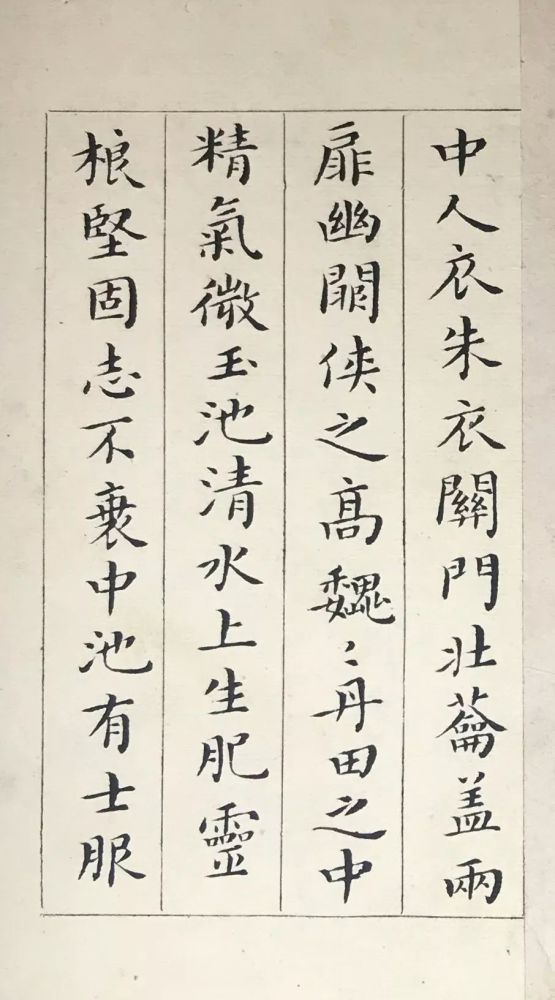 中人衣朱衣關門壮蘥盖兩
扉幽闗侠之髙魏〻丹田之中
精氣微玉池清水上生肥靈
根堅固志不衰中池有士服